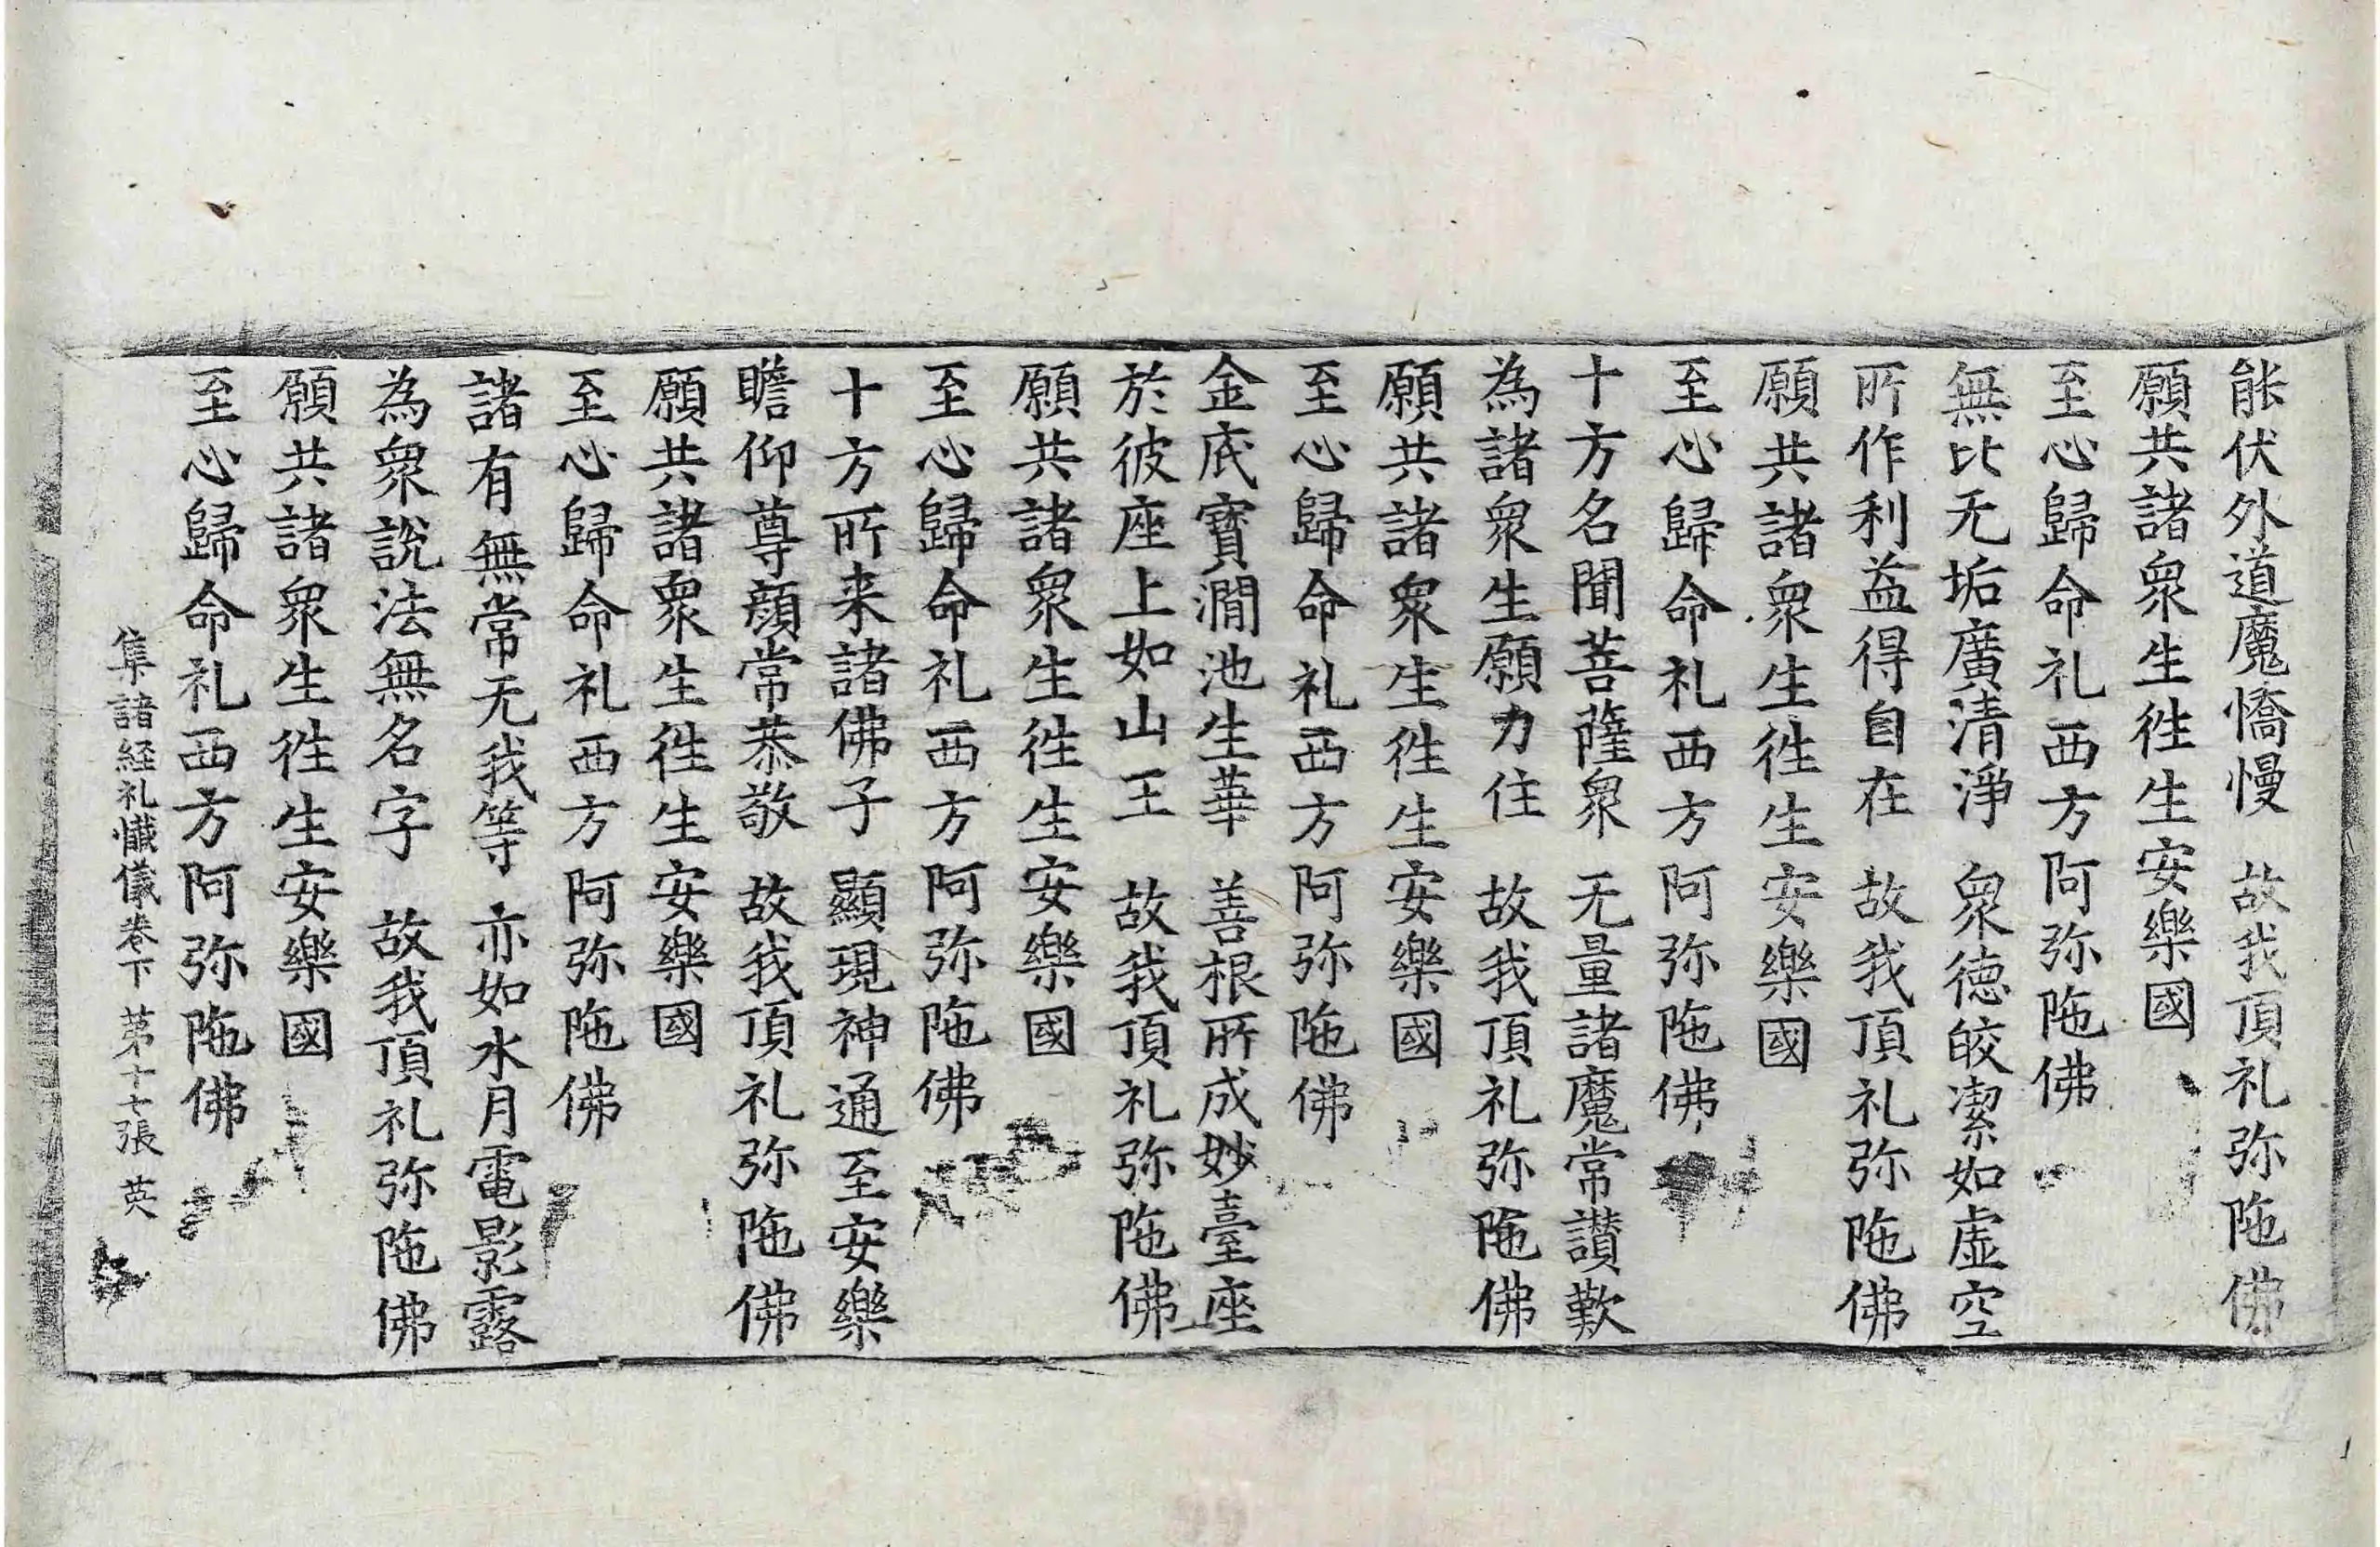 能伏外道魔憍慢　故我頂礼弥陁佛
願共諸衆生徃生安樂國
至心歸命礼西方阿弥陁佛
無比无垢廣清淨　衆徳皎潔如虛空
所作利益得自在　故我頂礼弥陁佛
願共諸衆生徃生安樂國
至心歸命礼西方阿弥陁佛
十方名聞菩薩衆　无量諸魔常讃歎
為諸衆生願力住　故我頂礼弥陁佛
願共諸衆生徃生安樂國
至心歸命礼西方阿弥陁佛
金底寶澗池生華　善根所成妙臺座
於彼座上如山王　故我頂礼弥陁佛
願共諸衆生徃生安樂國
至心歸命礼西方阿弥陁佛
十方所来諸佛子　顯現神通至安樂
瞻仰尊顔常恭敬　故我頂礼弥陁佛
願共諸衆生徃生安樂國
至心歸命礼西方阿弥陁佛
諸有無常无我等　亦如水月電影露
為衆說法無名字　故我頂礼弥陁佛
願共諸衆生徃生安樂國
至心歸命礼西方阿弥陁佛
集諸経礼懺儀卷下　第十七張　英